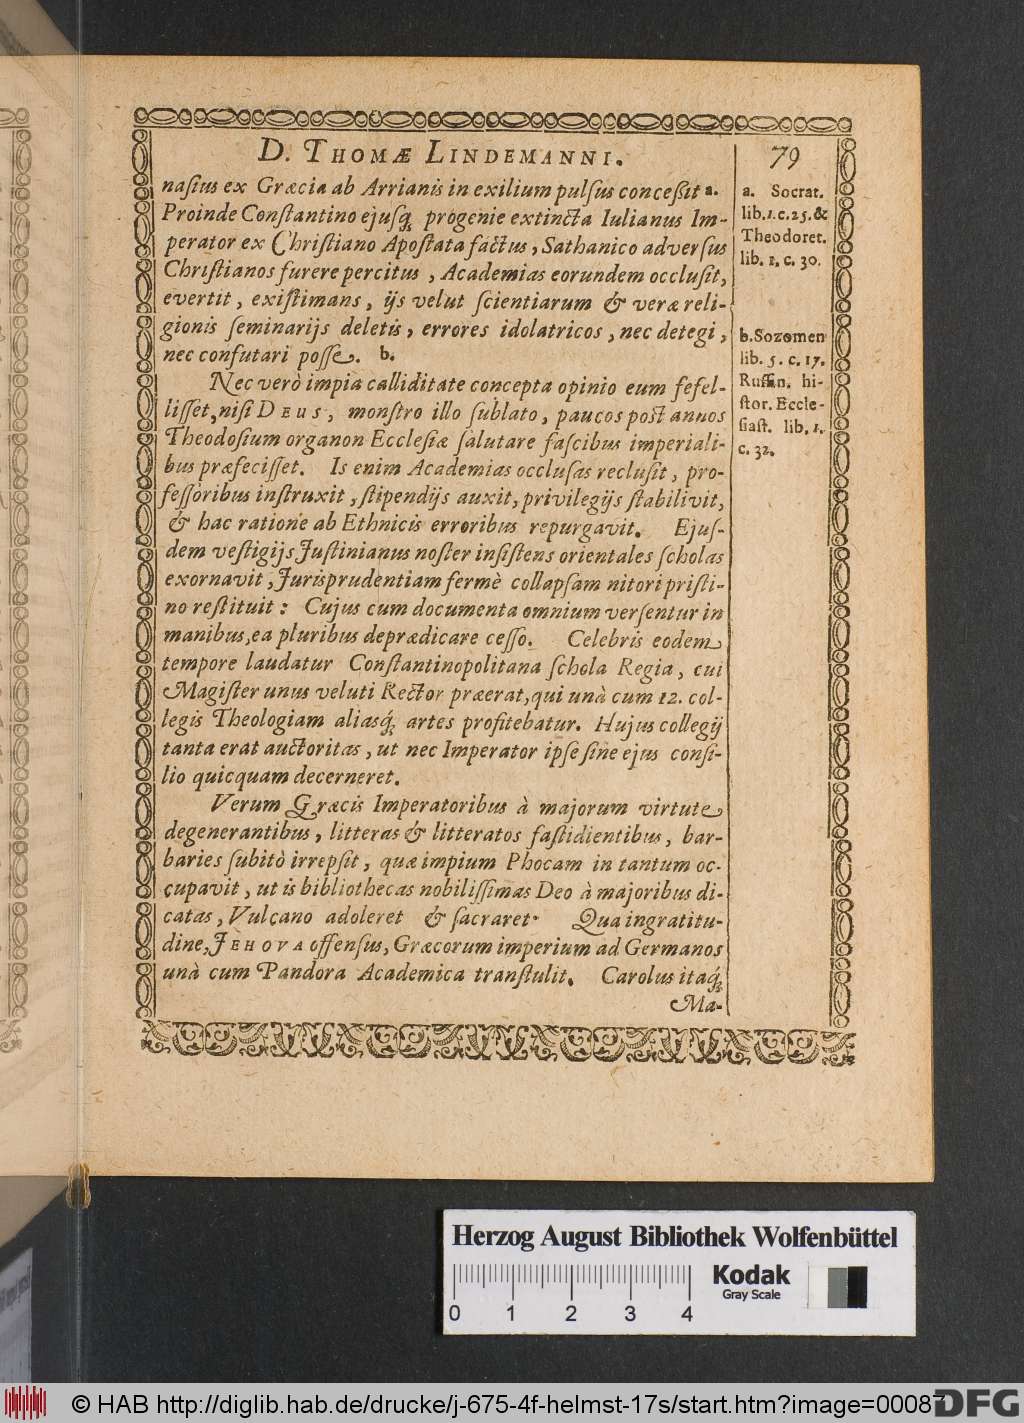 D. THOMÆ LINDEMANNI.
79
naſius ex Græcia ab Arrianis in exilium pulſus conceßit a.
Proinde Conſtantino ejusq́; progenie extincta Iulianus Im-
perator ex Chriſtiano Apoſtata factus, Sathanico adverſus
Chriſtianos furere percitus, Academias eorundem occluſit,
evertit, exiſtimans, ijs velut ſcientiarum & veræ reli-
gionis ſeminarijs deletis, errores idolatricos, nec detegi,
nec confutari poſſe. b.
Nec verò impia calliditate concepta opinio eum fefel-
liſſet, niſi DEUS, monſtro illo ſublato, paucos post annos
Theodoſium organon Eccleſiæ ſalutare faſcibus imperiali-
bus præfeciſſet. Is enim Academias occluſas recluſit, pro-
feſſoribus inſtruxit, ſtipendijs auxit, privilegijs ſtabilivit,
& hac ratione ab Ethnicis erroribus repurgavit. Ejuſ-
dem veſtigijs Juſtinianus noſter inſiſtens orientales ſcholas
exornavit, Jurisprudentiam fermè collapſam nitori priſti-
no reſtituit: Cujus cum documenta omnium verſentur in
manibus, ea pluribus deprædicare ceſſo. Celebris eodem
tempore laudatur Conſtantinopolitana ſchola Regia, cui
Magiſter unus veluti Rector præerat, qui unà cum 12. col-
legis Theologiam aliasq́; artes profitebatur. Hujus collegij
tanta erat auctoritas, ut nec Imperator ipſe ſine ejus conſi-
lio quicquam decerneret.
Verum Græcis Imperatoribus à majorum virtute
degenerantibus, litteras & litteratos faſtidientibus, bar-
baries ſubitò irrepſit, quæ impium Phocam in tantum oc-
cupavit, ut is bibliothecas nobiliſſimas Deo à majoribus di-
catas, Vulcano adoleret & ſacraret. Qua ingratitu-
dine, JEHOVA offenſus, Græcorum imperium ad Germanos
unà cum Pandora Academica tranſtulit. Carolus itaq́;
Ma-
a. Socrat.
lib. 1. c. 25. &
Theodoret.
lib. 1, c. 30.
b. Sozomen
lib. 5. c. 17.
Ruffin. hi-
ſtor. Eccle-
ſiaſt. lib. 1.
c. 32.
Herzog August Bibliothek Wolfenbüttel
0 1 2 3 4
Kodak
Gray Scale
© HAB http://diglib.hab.de/drucke/j-675-4f-helmst-17s/start.htm?image=00087
DFG